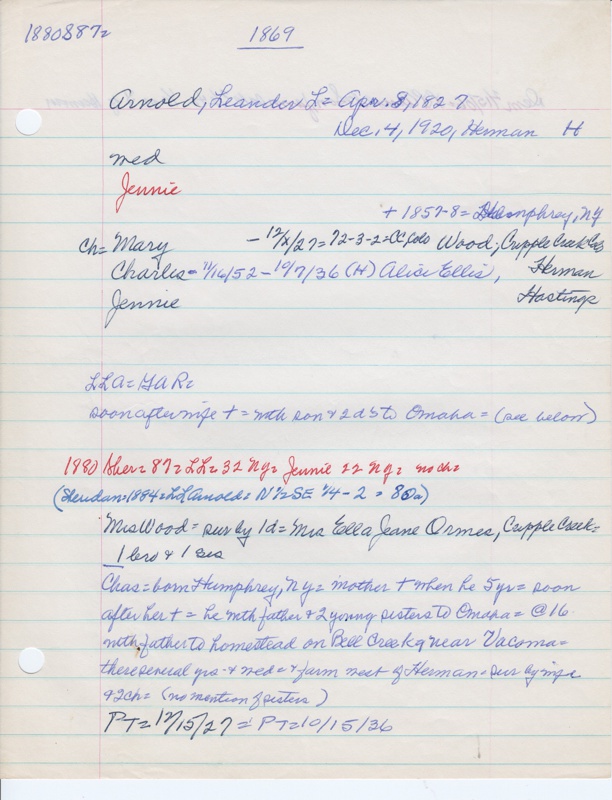 1880S87=
1869
Arnold, Leander L= Apr. 8, 1827
Dec. 4, 1920, Herman H
med
Jennie
+ 1857-8= Humphrey, NY
Ch= Mary - 12/x/27= 72-3-2= CC, Colo Wood, Cripple Creek Colo
Charles - 11/16/52 - 10/7/36 (H) Alice Ellis, Herman
Jennie Hastings
LLA= GAR=
soon after wife += with son & 2 ds to Omaha= (see below)
1880 Sher= 87= LL= 32 NY= Jennie 22 NY= no ch=
(Sheridan=1884= LL Arnold= N½SE ¼-2 = 80a)
Mrs Wood= sur by 1d= Mrs Ella Jeane Ormes, Cripple Creek=
1 bro & 1 sis
Chas= born Humphrey, NY= mother + when he 5yr= soon
after her += he with father & 2 young sisters to Omaha= @16
with father to homestead on Bell Creek near Vacoma=
there several yrs & med= & farm west of Herman= sur by wife
& 2ch= (no mention of sisters)
PT=12/15/27= PT=10/15/36